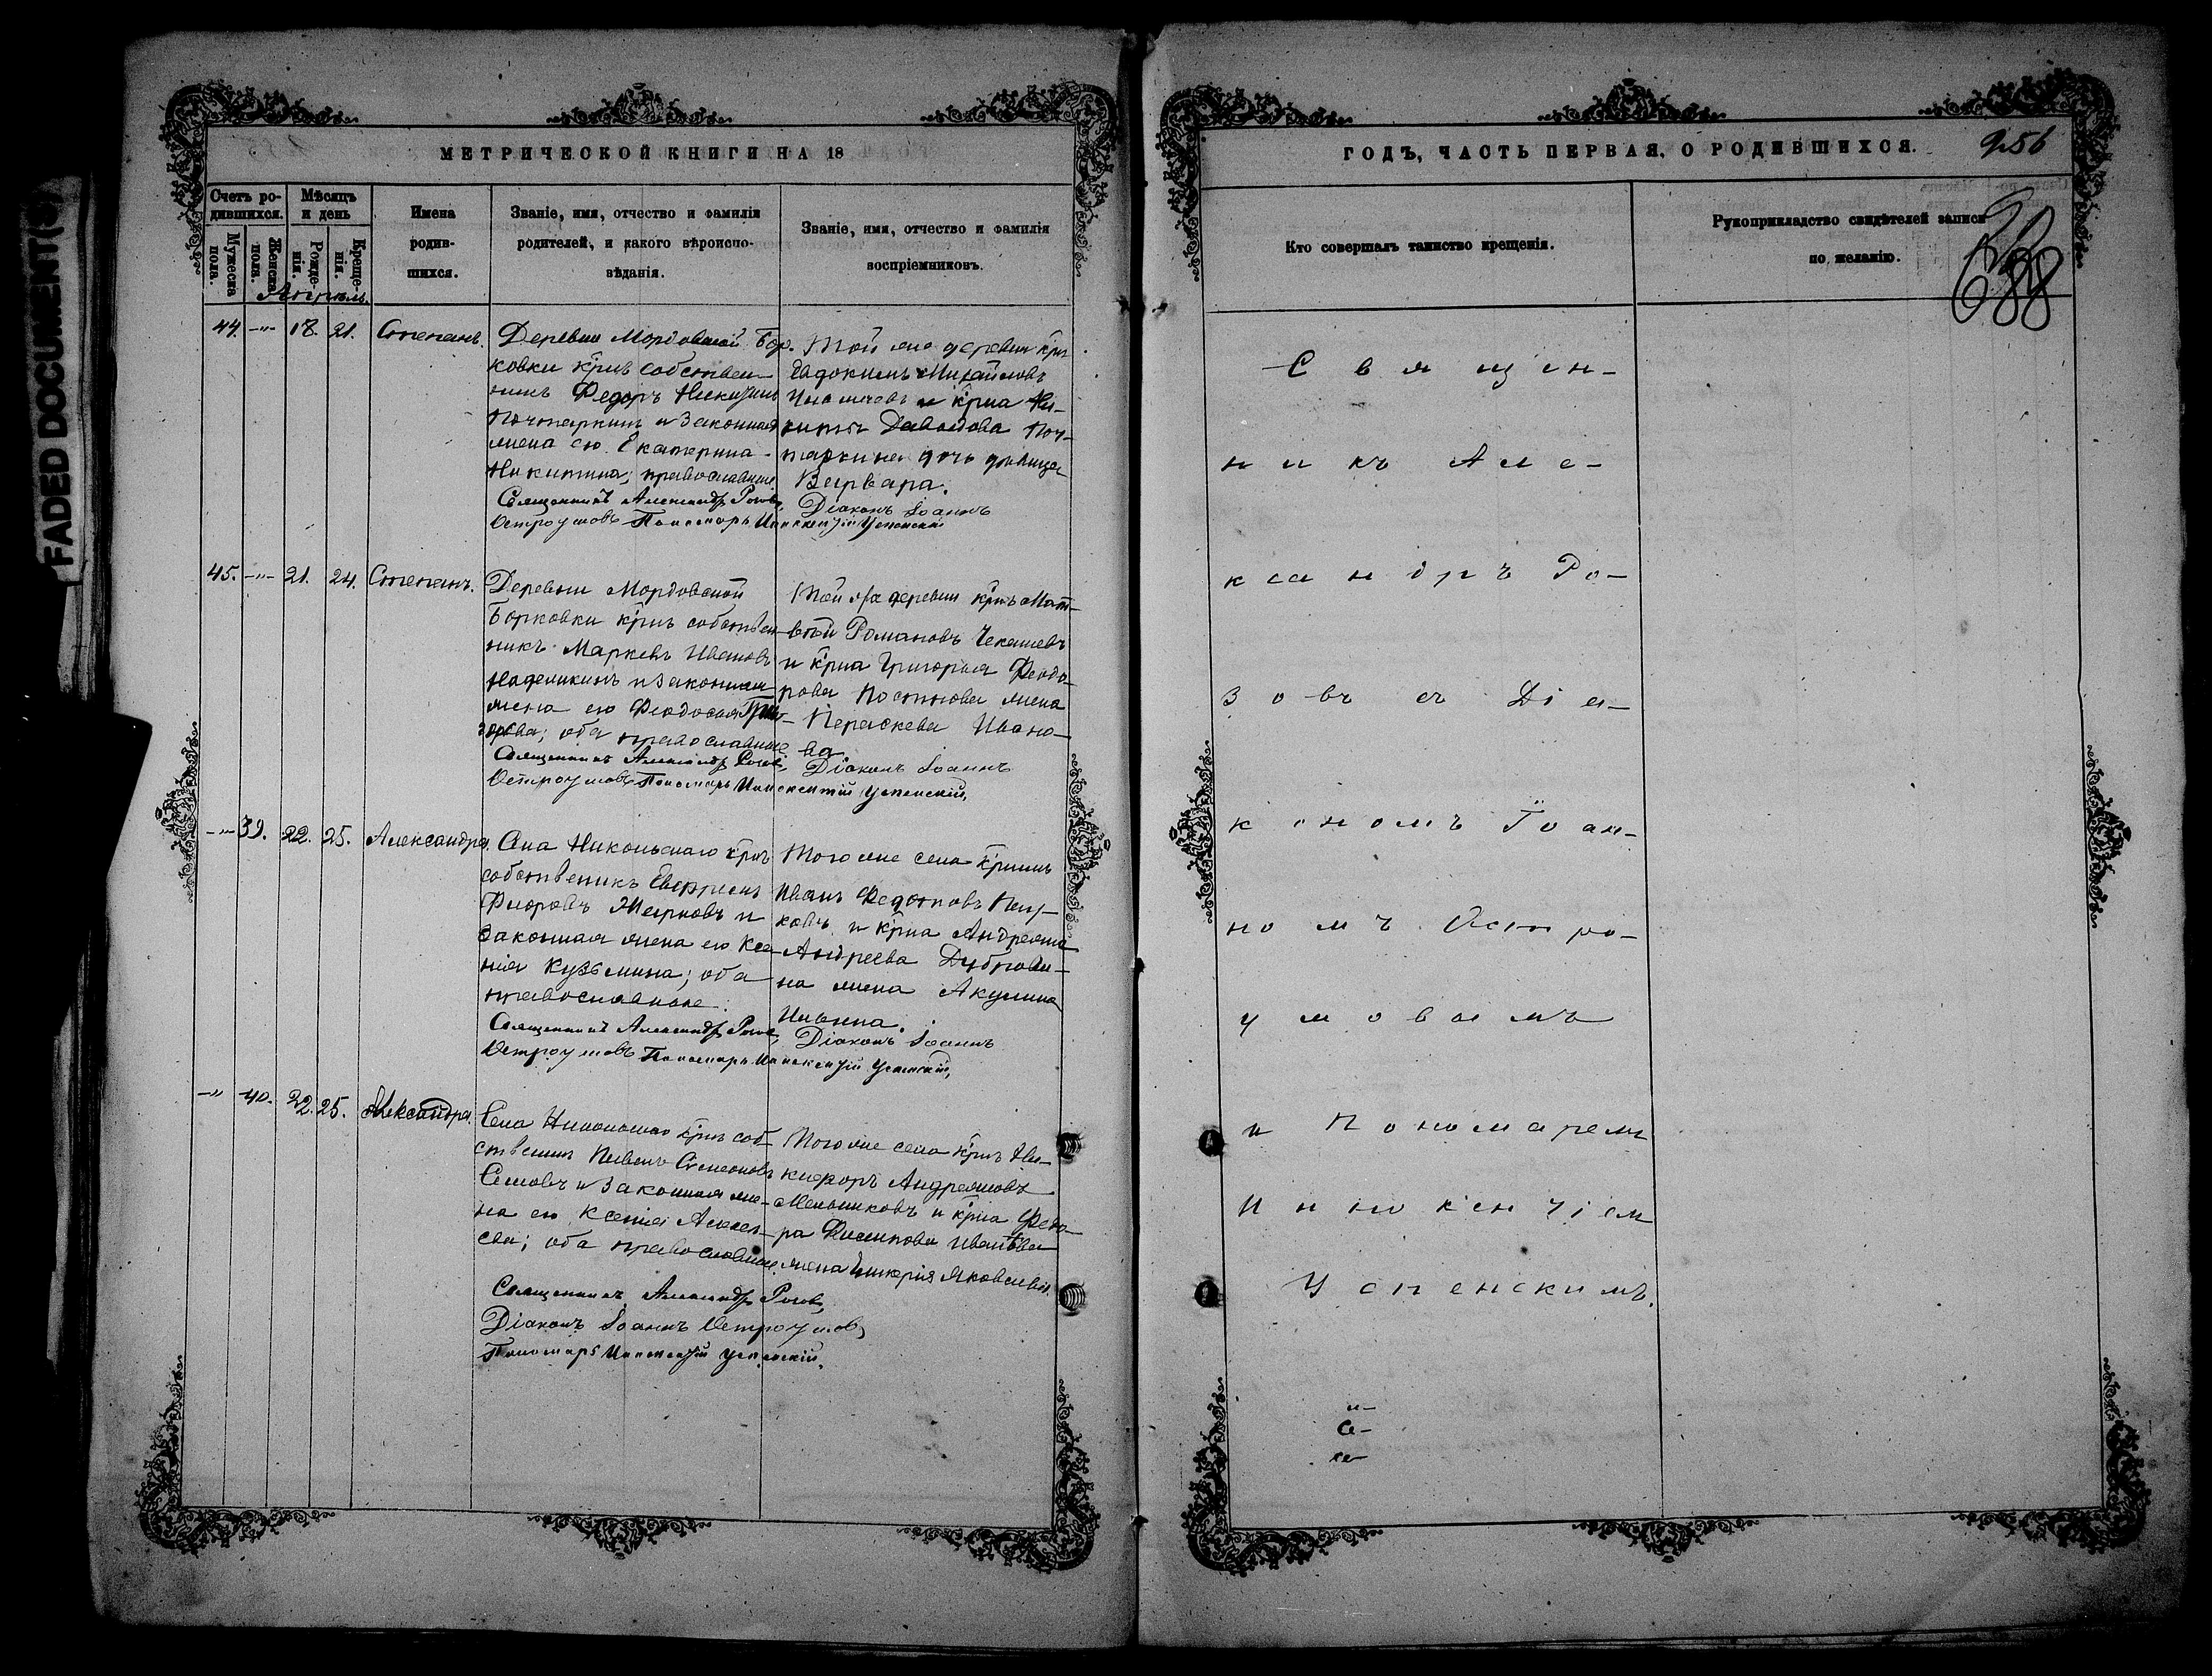 FADED DOCUMENT(S)
МЕТРИЧЕСКОЙ КНИГИ НА 18
Счетъ ро-
дившихся.
Мужеска
пола.
Женска
пола.
Мѣсяцъ
и день
Рожде-
нія.
Креще-
нія.
Имена
родив-
шихся.
Званіе, имя, отчество и фамилія
родителей, и какого вѣроиспо-
вѣданія.
Званіе, имя, отчество и фамилія
воспріемниковъ.
Апрѣль
44. -"- 18. 21. Степанъ.
Деревни Мордовской Бор-
ковки крнъ собствен-
никъ Федоръ
и законная
жена его Екатерина
Никитина; православные.
Священникъ Александръ Розовъ,
Остроумовъ Пономарь Иннокентій Успенскій
Той же деревни крнъ
Евдокимъ Михайловъ
и крна Ни-
киты Давыдова Поч-
таркина дочь дѣвица
Варвара.
Діаконъ Іоаннъ
45. -"- 21. 24. Степанъ.
Деревни Мордовской
Борковки крнъ собствен-
никъ Маркелъ Ивановъ
и законная
жена его Феодосія Григо-
рьева; оба православные
Священникъ Александръ Розовъ,
Остроумовъ Пономарь Иннокентій Успенскій,
Той же деревни крнъ Мат-
вѣй Романовъ Чекашевъ
и крна Григорья Феодо-
рова Постнова жена
Параскева Ивано-
ва
Діаконъ Іоаннъ
-"- 39. 22. 25. Александра.
Села Никольскаго крнъ
собственикъ
и
законная жена его Ксе-
нія Кузьмина; оба
православные.
Священникъ Александръ Розовъ,
Остроумовъ Пономарь Иннокентій Успенскій,
Того же села крнинъ
Иванъ Федотовъ
ковъ и крна Андреяна
Андреева Дуброви-
на жена Акулина
Діаконъ Іоаннъ
-"- 40. 22. 25. Александра.
Села Никольскаго крнъ соб-
ственникъ Павелъ Симеоновъ
и законная же-
на его Ксенія Алексе-
ева; оба православные.
Священникъ Александръ Розовъ,
Діаконъ Іоаннъ Остроумовъ,
Пономарь Иннокентій Успенскій.
Того же села крнъ Ни-
кифоръ Андреяновъ
Мельниковъ и крна Федо-
ра Филипова
жена Гликерія Яковлева.
ГОДЪ, ЧАСТЬ ПЕРВАЯ, О РОДИВШИХСЯ.
956
688
Кто совершалъ таинство крещенія.
Рукоприкладство свидѣтелей записи
по желанію.
Священ-
никъ Але-
ксандръ Ро-
зовъ съ Діа-
кономъ Іоан-
номъ Остро-
умовымъ
и Пономаремъ
Инокентіемъ
Успенскимъ.